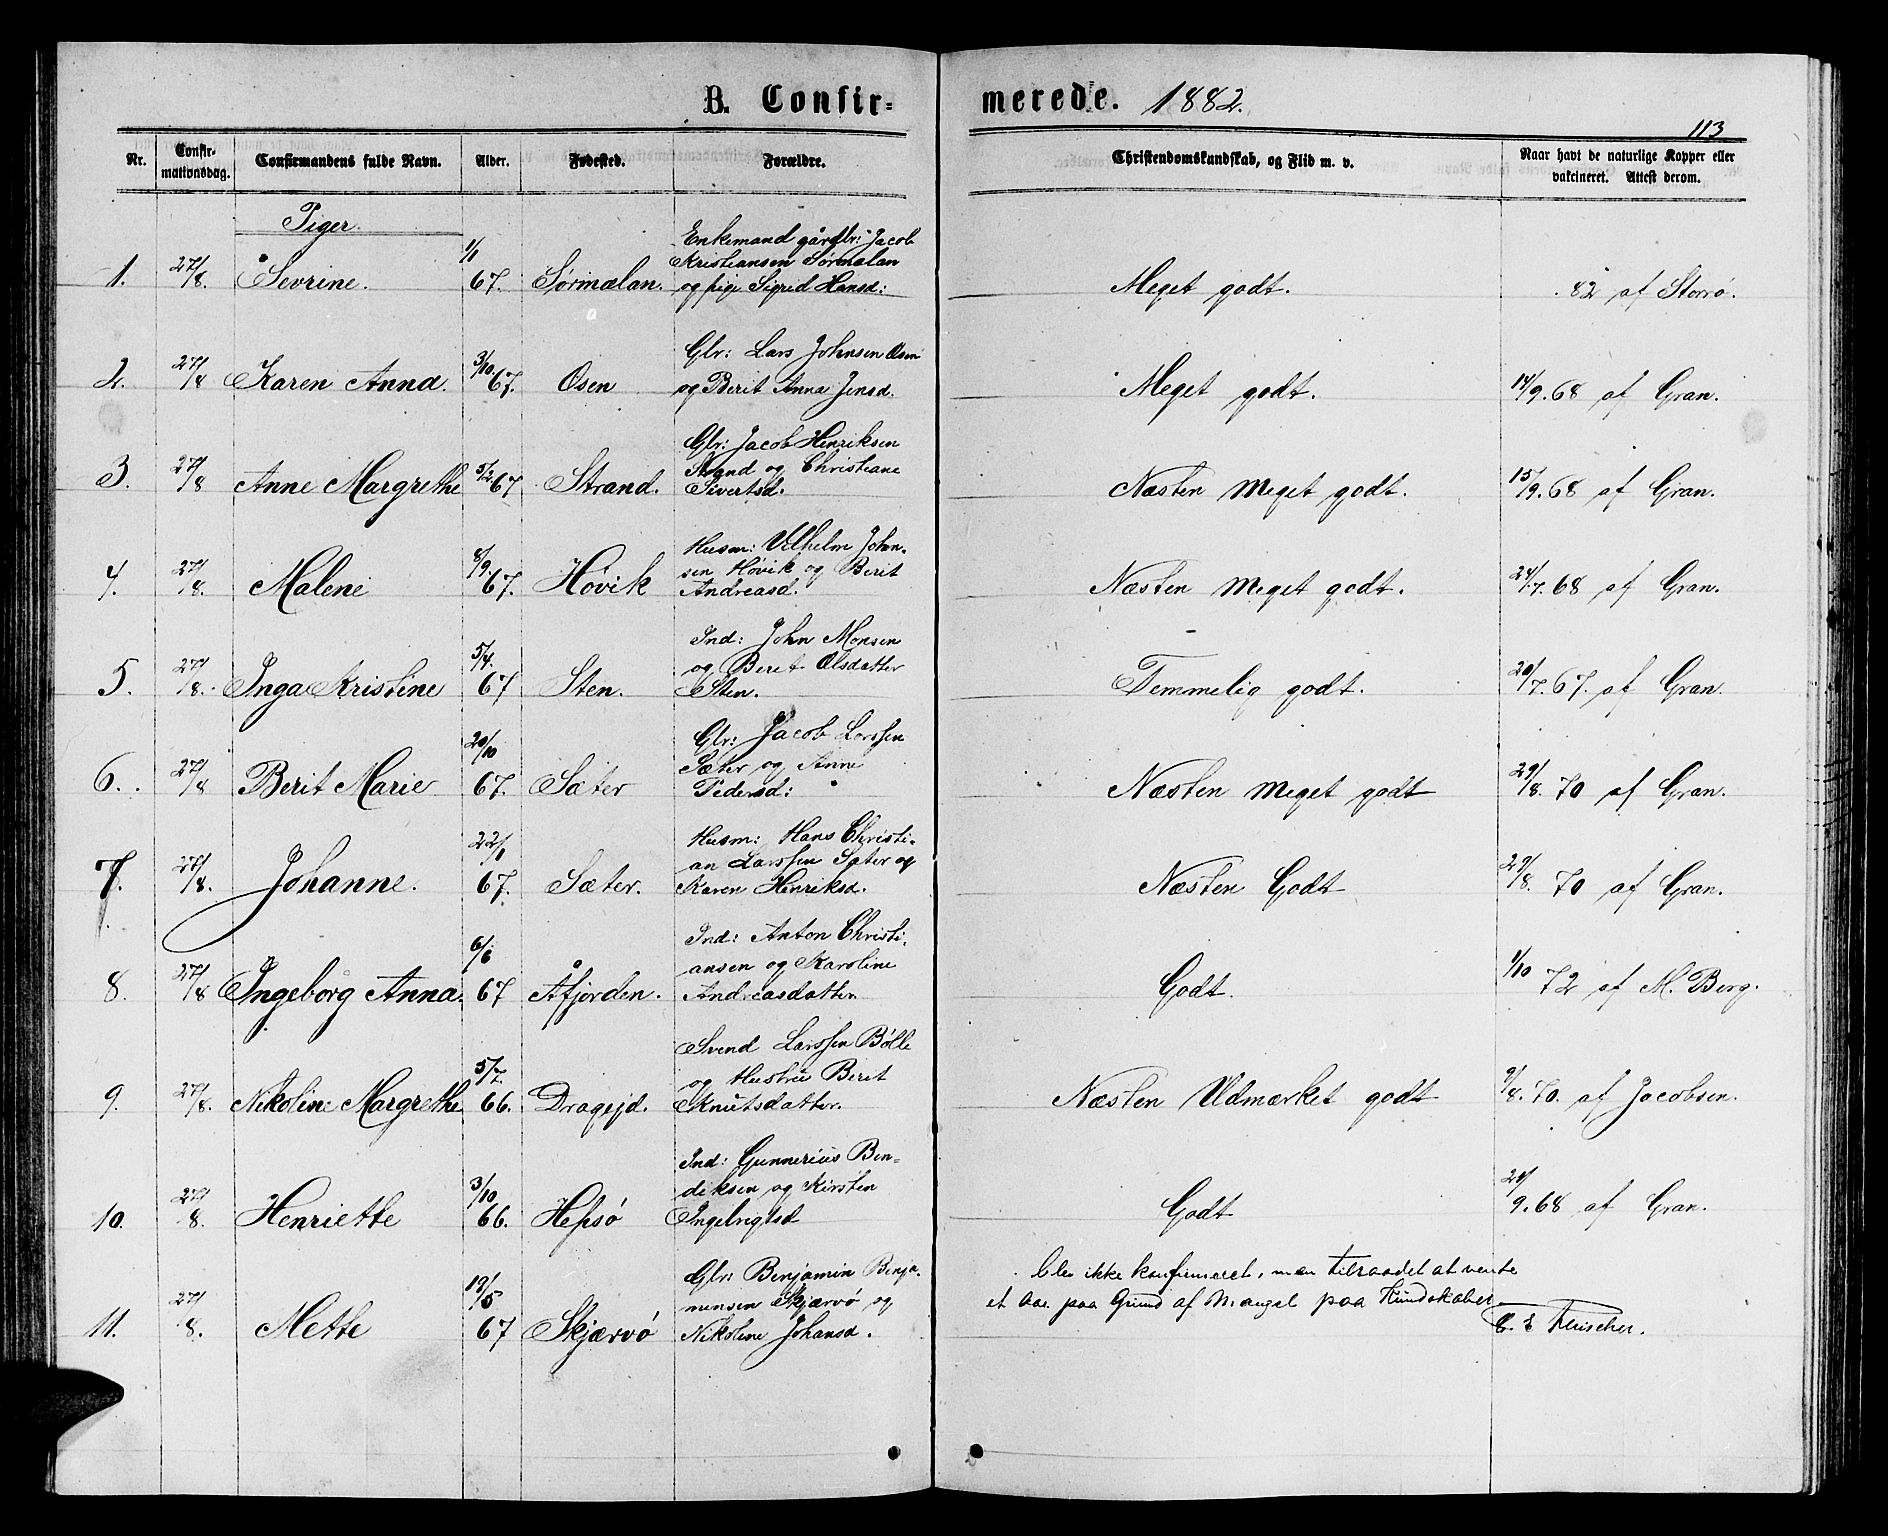 B. Confirmerede. 1882.
113
Nr.
Confirmationsdag.
Confirmandens fulde Navn.
Alder.
Fødested.
Forældre.
Christendomskundskab, og Flid m. v.
Naar havt de naturlige Kopper eller
vakcineret. Attest derom.
Piger.
1. 27/8. Sevrine. 1/1 67. Sørmælan.
Enkemand gårdbr: Jacob
Kristiansen Sørmælan
og pige Sigrid Hansd:
Meget godt. 82 af Storrø.
2. 27/8 Karen Anna. 3/10 67. Osen
Glr: Lars Johnsen Osen
og Berit Anna Jensd.
Meget godt. 14/9.68 af Gran.
3. 27/8 Anne Margrethe 5/2 67 Strand.
Glr: Jacob Henriksen
Strand og Christiane
Sivertsd.
Næsten Meget godt. 15/9.68 af Gran.
4. 27/8. Malene 8/9. 67. Hovik
Husm: Vilhelm John-
sen Hovik og Berit
Andreasd.
Næsten Meget godt. 24/7.68 af Gran.
5. 27/8. Inga Kristine 5/4. 67 Sten.
Ind: John Monsen
og Berit Olsdatter
Sten.
Temmelig godt. 20/7.67. af Gran.
6. 27/8 Berit Marie 20/10 67. Sæter
Glr: Jacob Larssen
Sæter og Anne
Pedersd:
Næsten Meget godt 29/8. 70 af Gran.
7. 27/8. Johanne. 22/1 67. Sæter.
Husm: Hans Christi-
an Larssen Sæter og
Karen Henriksd.
Næsten Godt 29/8. 70 af Gran.
8. 27/8 Ingeborg Anna. 6/6 67 Åfjorden.
Ind: Anton Christi-
ansen og Karoline
Andreasdatter
Godt. 1/10 72 af M. Berg.
9. 27/8. Nikoline Margrethe 5/7. 66. Drageid.
Svend Larssen Bølle
og Hustru Berit
Knutsdatter.
Næsten Udmærket godt 9/8.70. af Jacobsen.
10. 27/8. Henriette 3/10 66. Hepsø
Ind: Gunnerius Ben-
diksen og Kirsten
Ingebrigtsd
Godt 24/9.68 af Gran.
11. 27/8. Mette 19/5 67 Skjærvø
Glr: Benjamin Benja-
minsen Skjærvø og
Nikoline Johansd.
Blev ikke konfirmeret, men tilraadet at vente
et Aar paa Grund af Mangel paa Kundskaber.
Fleischer.